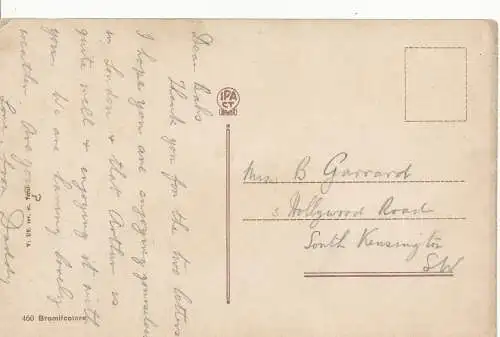 Dear Babs
Thank you for the two letters
I hope you are enjoying yourselves
in London & that Arthur is
quite well & enjoying it with
you. We are having lovely
weather. Are you?
Love from Daddy
IPA
CT
Mrs. B Garrard
3 Hollywood Road
South Kensington
SW
460 Bromifcolore